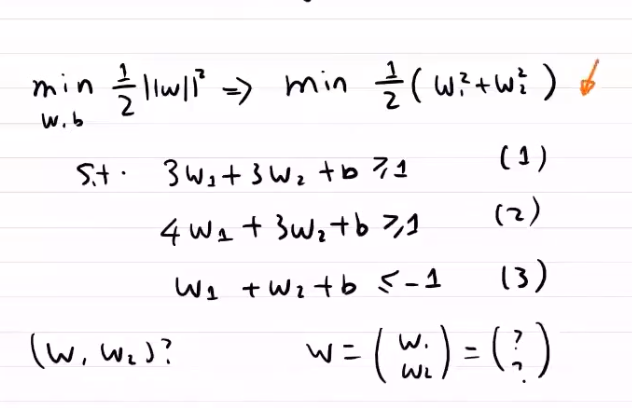 min w,b ½ ||w||² => min ½ ( w₁² + w₂² )
s.t. 3w₁ + 3w₂ + b ≥ 1 (1)
4w₁ + 3w₂ + b ≥ 1 (2)
w₁ + w₂ + b ≤ -1 (3)
(w₁ w₂)? w = ( w₁ w₂ ) = ( ? ? )